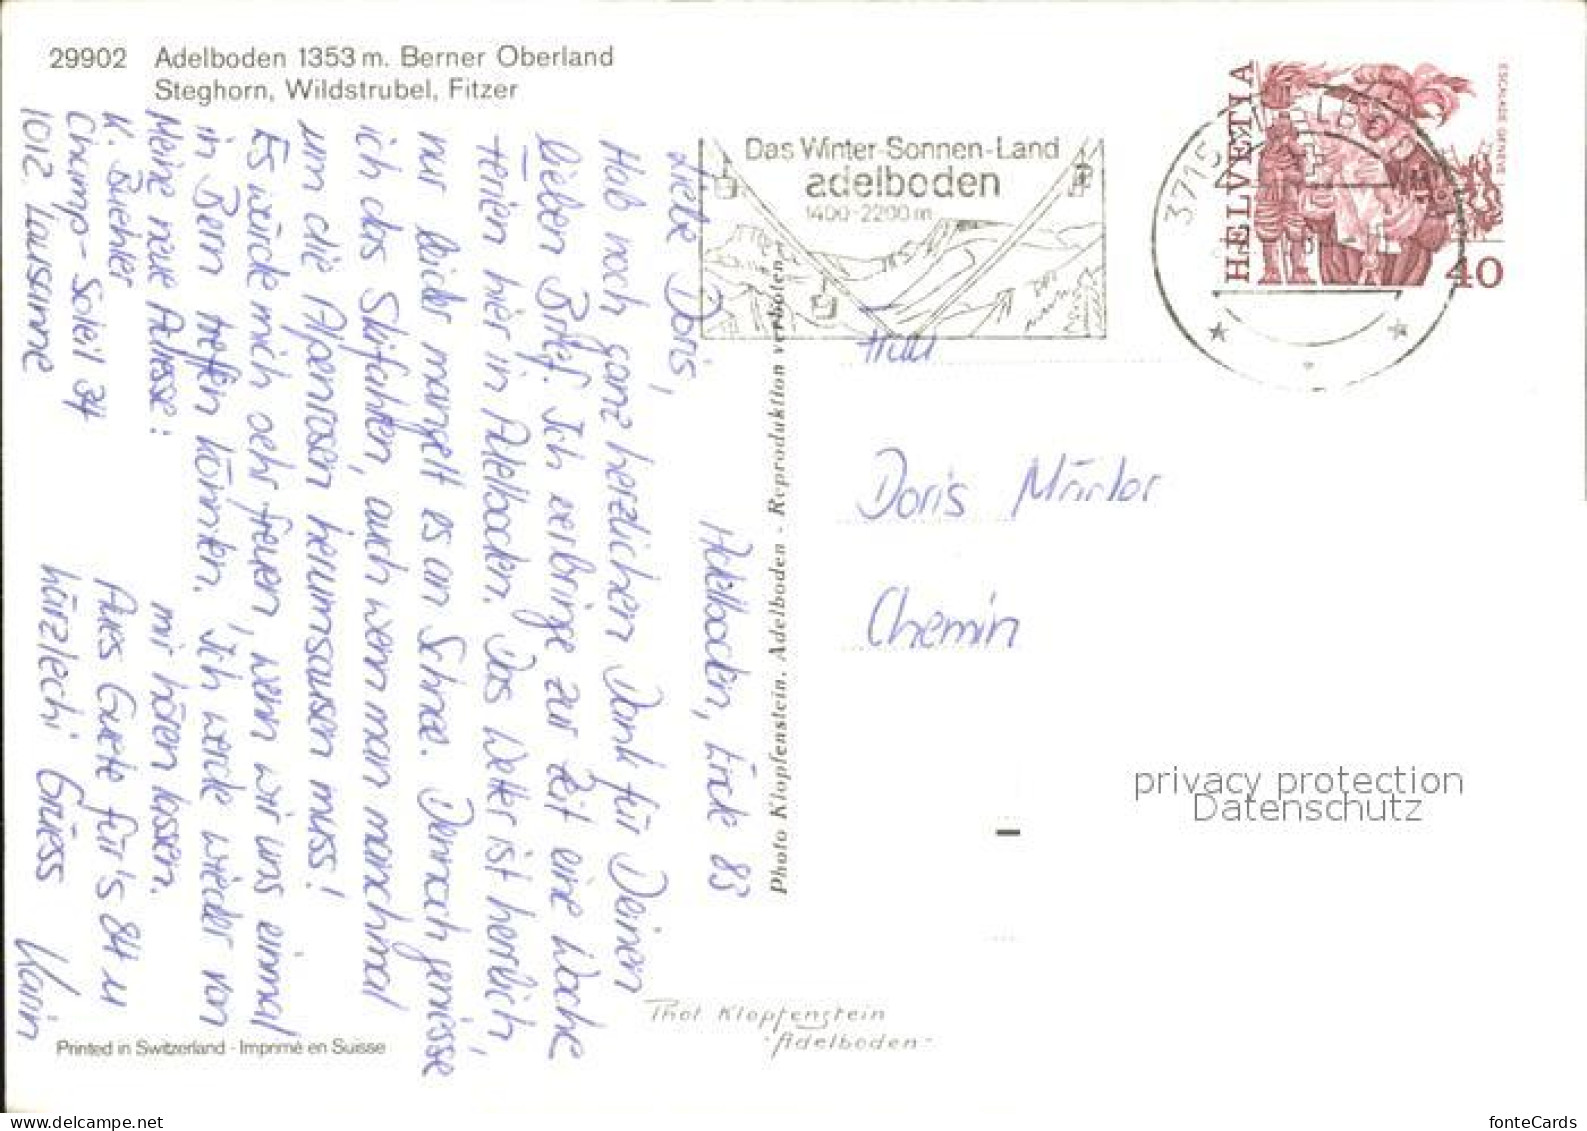 29902 Adelboden 1353 m. Berner Oberland
Steghorn, Wildstrubel, Fitzer
Adelboden, Ende 83
Liebe Doris,
Hab noch ganz herzlichen Dank für Deinen
lieben Brief. Ich verbringe zur Zeit eine Woche
Ferien hier in Adelboden. Das Wetter ist herrlich,
nur leider mangelt es an Schnee. Dennoch geniesse
ich das Skifahren, auch wenn man manchmal
um die Alpenrosen herumsausen muss!
Es würde mich sehr freuen, wenn wir uns einmal
in Bern treffen könnten. Ich werde wieder von
mir hören lassen.
Meine neue Adresse:
K. Biehler
Champ-Soleil 34
1012 Lausanne
Alles Guete für's 84 u
härzlechi Grüess
Karin
Photo Klopfenstein, Adelboden - Reproduktion verboten
Das Winter-Sonnen-Land
adelboden
1400-2200 m
3715 ADELBODEN
HELVETIA
ESCALADE GENÈVE
40
Frau
Doris
Chemin
privacy protection
Datenschutz
Phot Klopfenstein
-Adelboden-
Printed in Switzerland - Imprimé en Suisse
www.delcampe.net
fonteCards